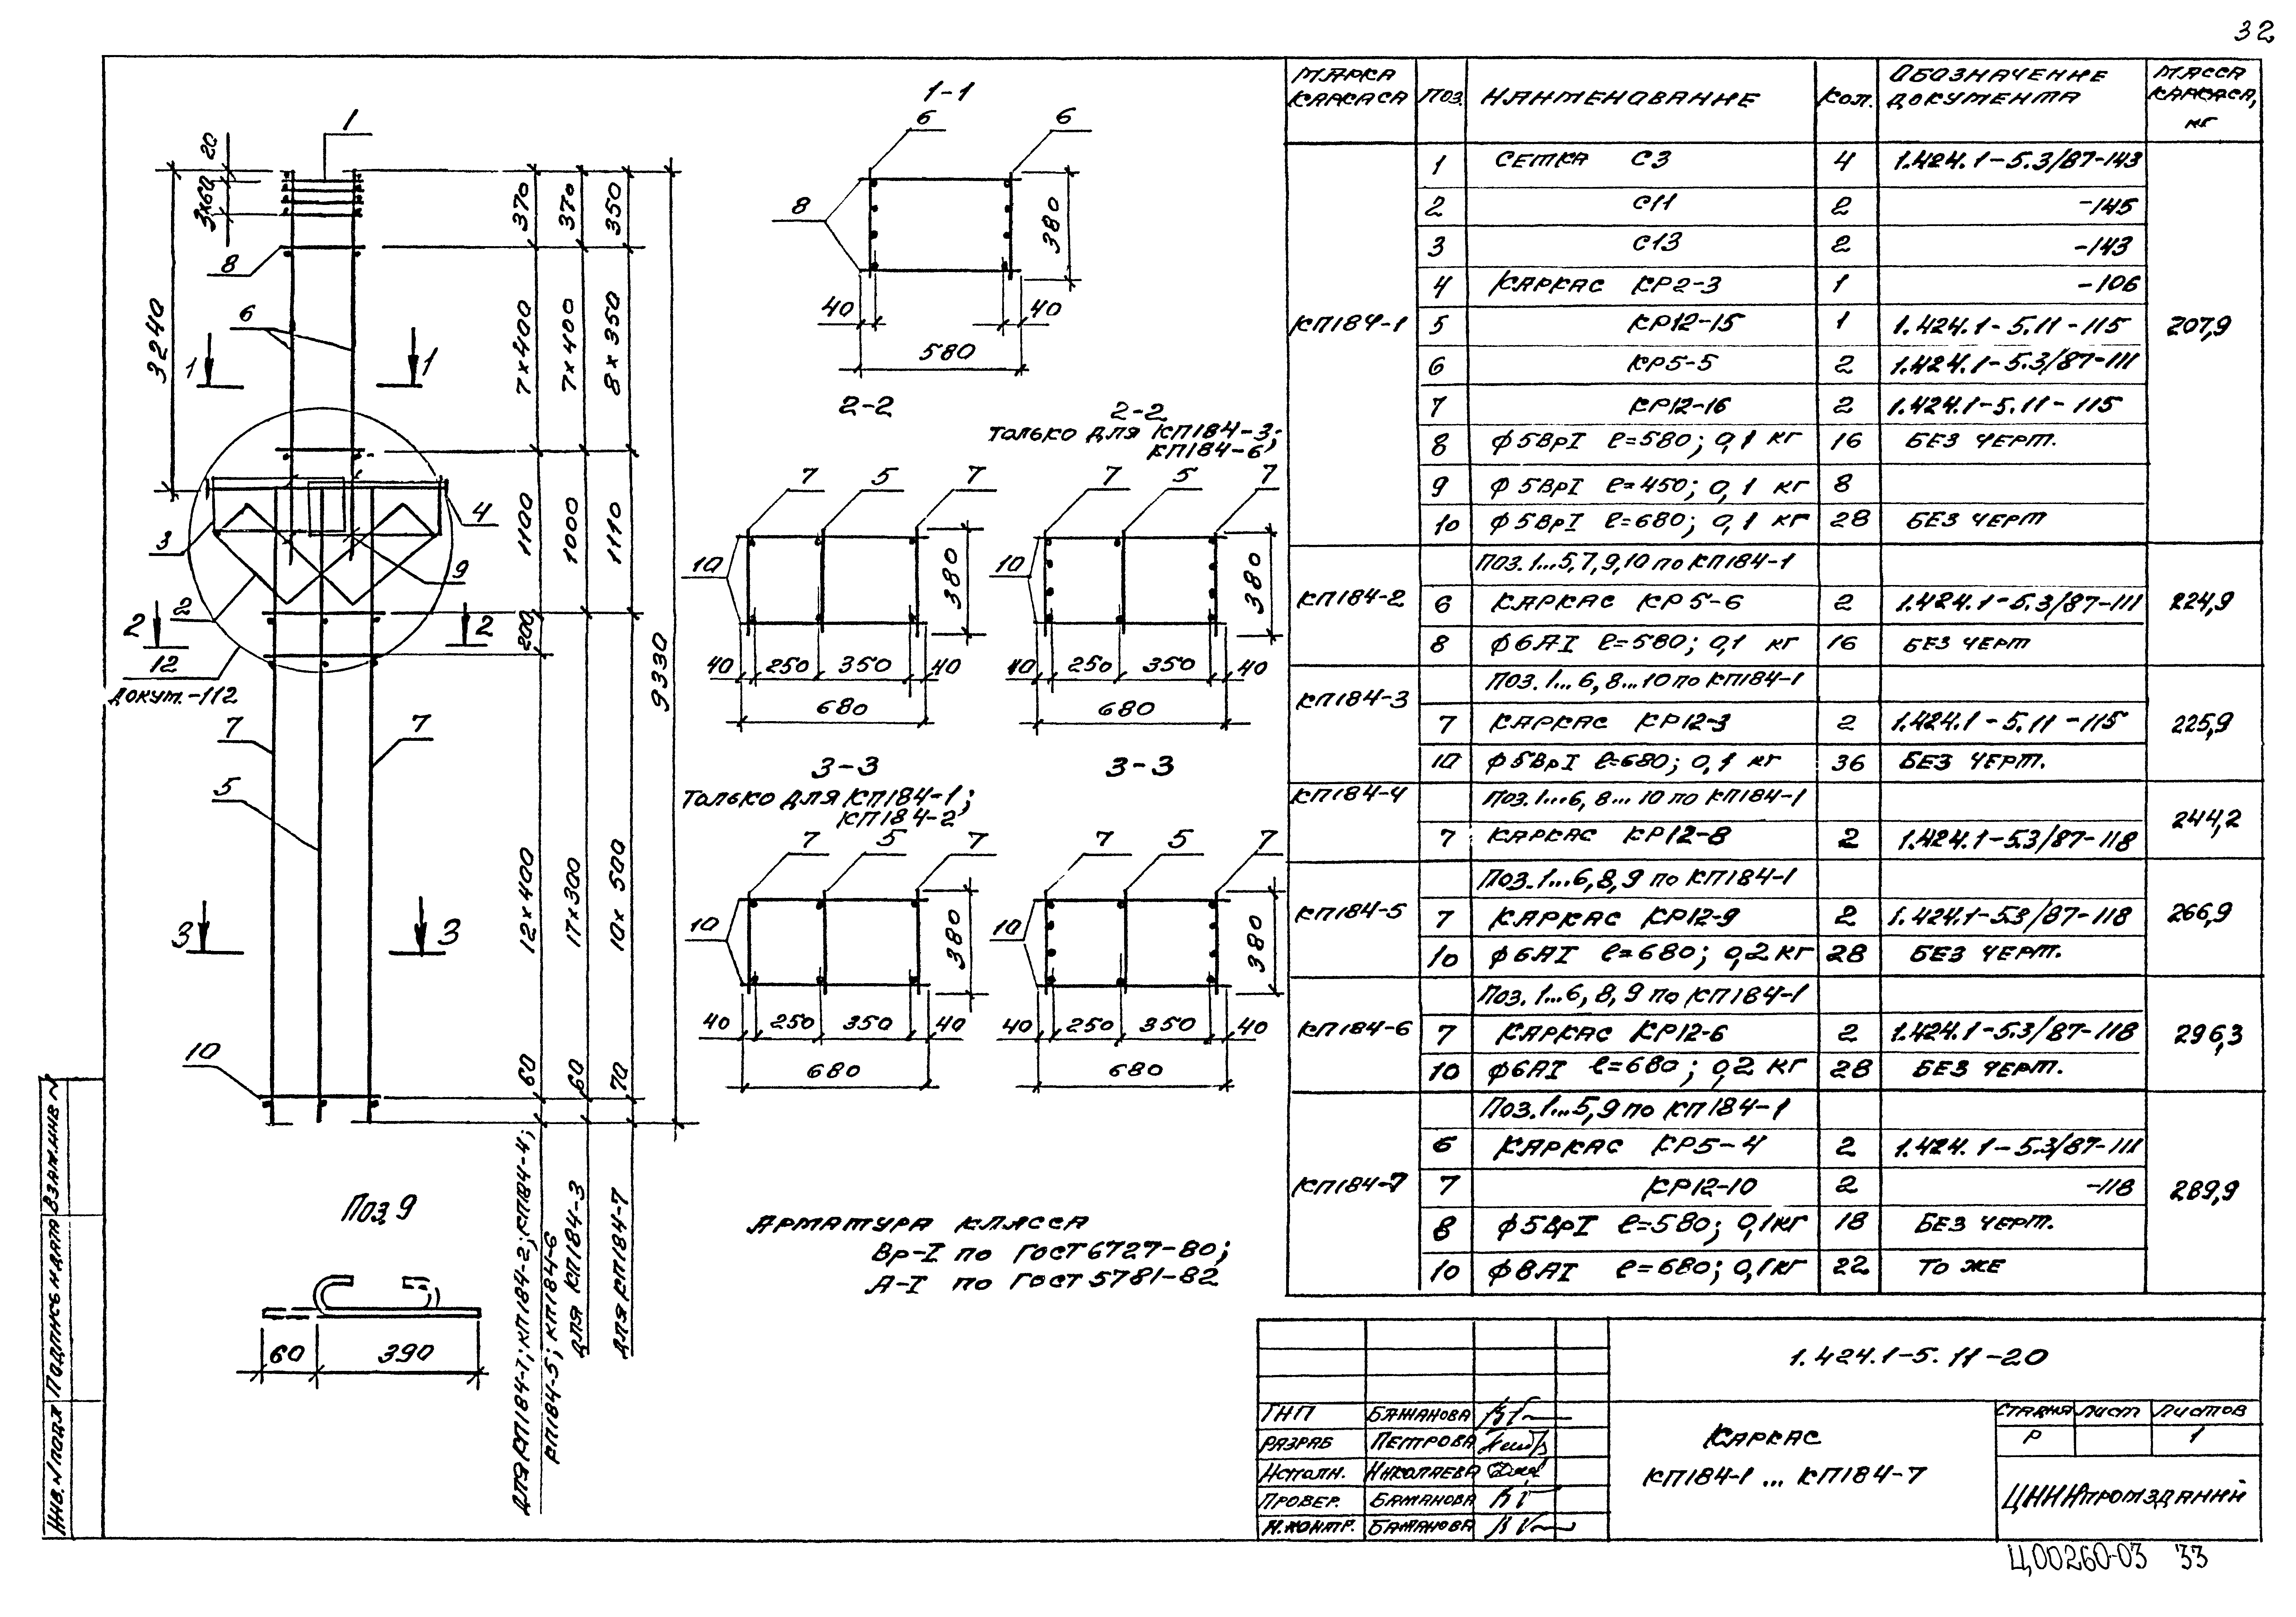 32
МАРКА КАРКАСА | ПОЗ. | НАИМЕНОВАНИЕ | КОЛ. | ОБОЗНАЧЕНИЕ ДОКУМЕНТА | МАССА КАРКАСА, КГ
КП184-1 | 207,9
1 | СЕТКА С3 | 4 | 1.424.1-5.3/87-143
2 | С11 | 2 | -145
3 | С13 | 2 | -143
4 | КАРКАС КР2-3 | 1 | -106
5 | КР12-15 | 1 | 1.424.1-5.11-115
6 | КР5-5 | 2 | 1.424.1-5.3/87-111
7 | КР12-16 | 2 | 1.424.1-5.11-115
8 | ф5ВрI ℓ=580; 0,1 кг | 16 | БЕЗ ЧЕРТ.
9 | ф5ВрI ℓ=450; 0,1 кг | 8
10 | ф5ВрI ℓ=680; 0,1 кг | 28 | БЕЗ ЧЕРТ
КП184-2 | 224,9
Поз. 1...5,7,9,10 по КП184-1
6 | КАРКАС КР5-6 | 2 | 1.424.1-5.3/87-111
8 | ф6АI ℓ=580; 0,1 кг | 16 | БЕЗ ЧЕРТ
КП184-3 | 225,9
Поз. 1...6, 8...10 по КП184-1
7 | КАРКАС КР12-3 | 2 | 1.424.1-5.11-115
10 | ф5ВрI ℓ=680; 0,1 кг | 36 | БЕЗ ЧЕРТ.
КП184-4 | 244,2
Поз. 1...6, 8...10 по КП184-1
7 | КАРКАС КР12-8 | 2 | 1.424.1-5.3/87-118
КП184-5 | 266,9
Поз. 1...6,8,9 по КП184-1
7 | КАРКАС КР12-9 | 2 | 1.424.1-5.3/87-118
10 | ф6АI ℓ=680; 0,2 кг | 28 | БЕЗ ЧЕРТ.
КП184-6 | 296,3
Поз. 1...6, 8, 9 по КП184-1
7 | КАРКАС КР12-6 | 2 | 1.424.1-5.3/87-118
10 | ф6АI ℓ=680; 0,2 кг | 28 | БЕЗ ЧЕРТ.
КП184-7 | 289,9
Поз. 1...5,9 по КП184-1
6 | КАРКАС КР5-4 | 2 | 1.424.1-5.3/87-111
7 | КР12-10 | 2 | -118
8 | ф5ВрI ℓ=580; 0,1кг | 18 | БЕЗ ЧЕРТ.
10 | ф8АI ℓ=680; 0,1кг | 22 | ТО ЖЕ
1
20
3х60
3240
8
6
1 1
3
4
9
2
2 2
12
докум.-112
7 7
5
3 3
10
370 370 350
7х400 7х400 8х350
1100 1000 1110
200
12х400 17х300 10х500
60 60 70
9330
ДЛЯ КП184-1; КП184-2; КП184-4;
КП184-5; КП184-6
ДЛЯ КП184-3
ДЛЯ КП184-7
Поз. 9
60 390
1-1
6 6
8
380
40 40
580
2-2
7 5 7
10
380
40 250 350 40
680
2-2
Только для КП184-3;
КП184-6;
7 5 7
10
380
40 250 350 40
680
3-3
Только для КП184-1;
КП184-2
7 5 7
10
380
40 250 350 40
680
3-3
7 5 7
10
380
40 250 350 40
680
АРМАТУРА КЛАССА
Вр-I по ГОСТ 6727-80;
А-I по ГОСТ 5781-82
1.424.1-5.11-20
ГИП БАЖАНОВА
РАЗРАБ ПЕТРОВА
Исполн. НИКОЛАЕВА
ПРОВЕР. БАЖАНОВА
Н.КОНТР. БАЖАНОВА
КАРКАС
КП184-1 ... КП184-7
СТАДИЯ ЛИСТ ЛИСТОВ
Р 1
ЦНИИпромзданий
Ц00260-03 33
ИНВ.№ ПОДЛ ПОДПИСЬ И ДАТА ВЗАМ.ИНВ №